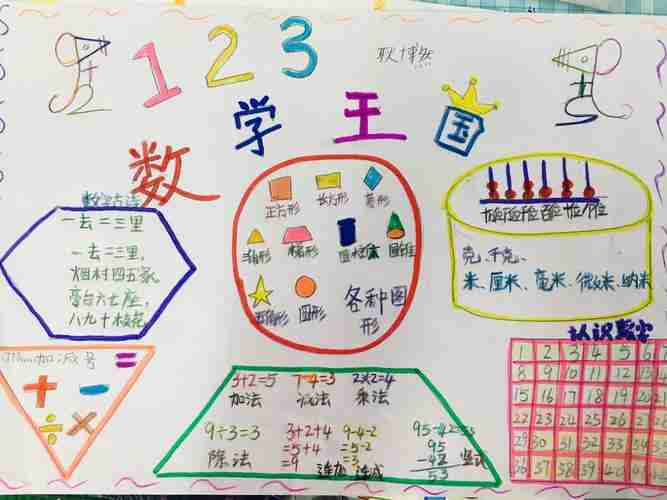 1 2 3
数学王国
数学古诗
一去二三里
一去二三里,
烟村四五家,
亭台六七座,
八九十枝花。
正方形
长方形
菱形
三角形
梯形
圆柱体
圆锥
五角形
圆形
各种图形
克、千克、
米、厘米、毫米、微米、纳米
认识数字
1 2 3 4 5 6
8 9 10 11 12 13
15 16 17 18 19 20
22 23 24 25 26 27
29 30 31 32 33 34
36 37 38 39 40
加减号
+ − =
÷ ×
3+2=5 7-4=3 2×2=4
加法 减法 乘法
9÷3=3
除法
3+2+4
=5+4
=9
连加
9-4-2
=5-2
=3
连减
95-42=53
95
-42
53
竖式